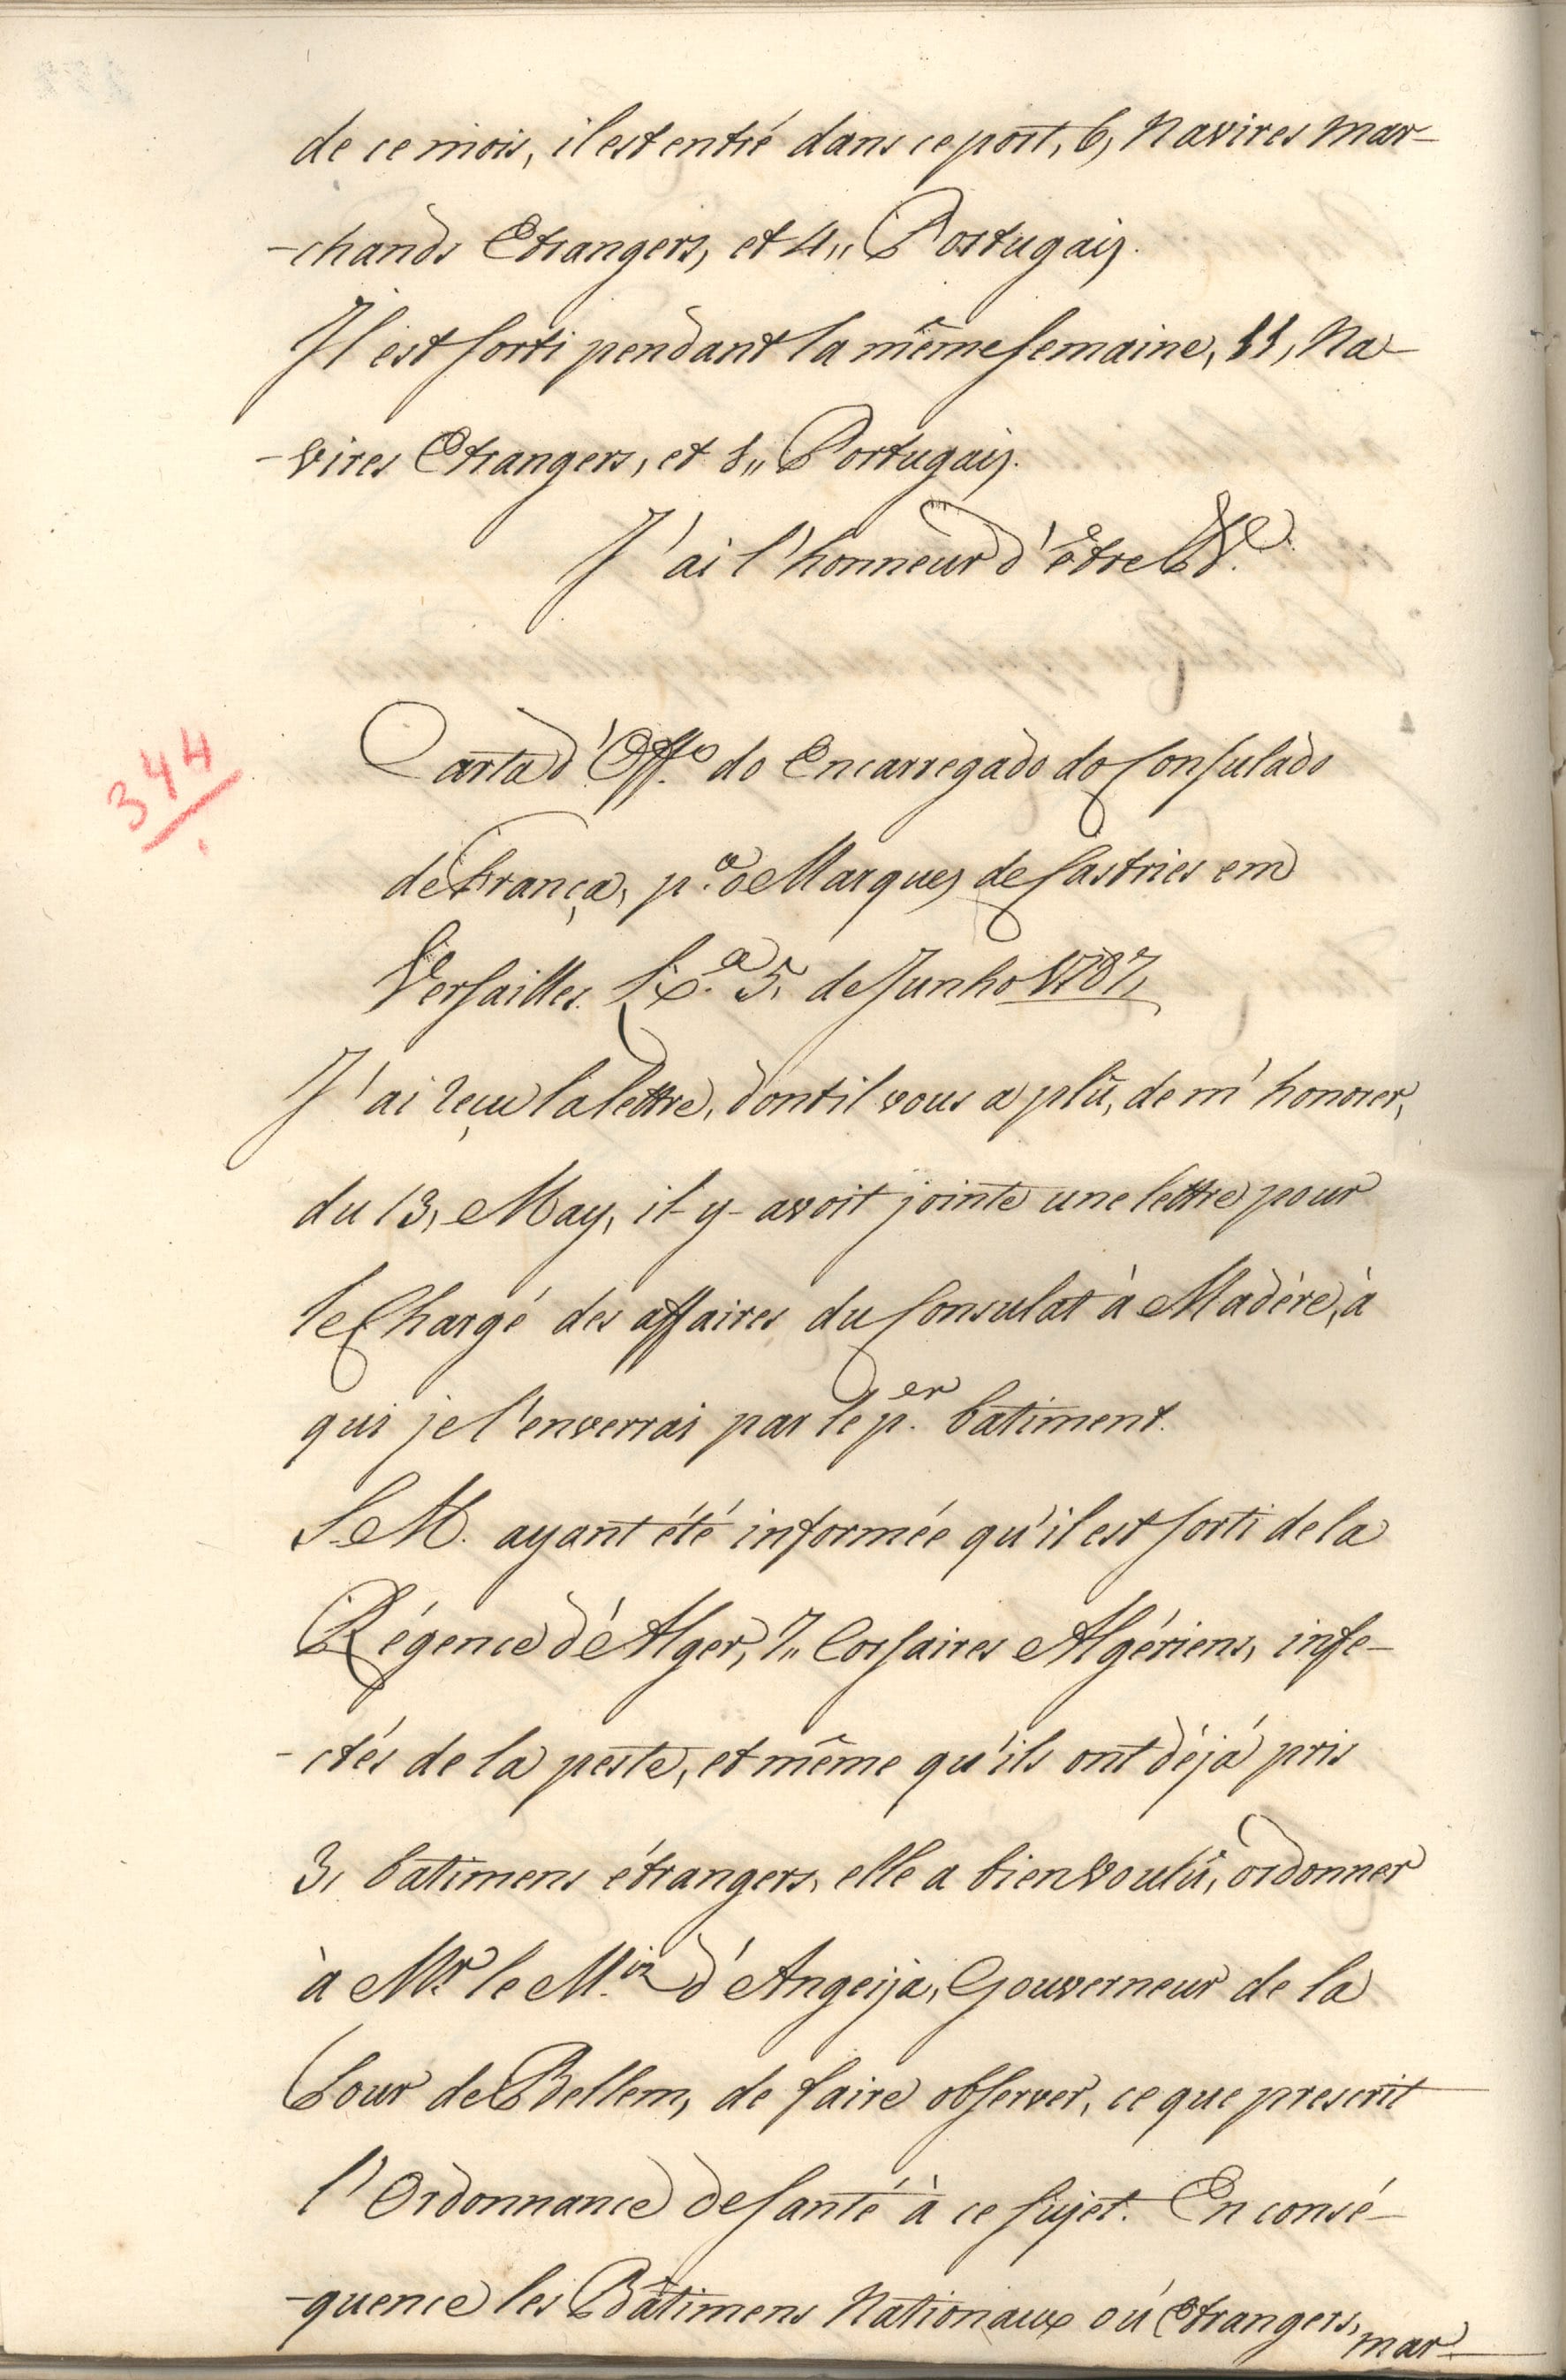 de ce mois, il est entré dans ce port, 6, Navires Mar-
-chands Etrangers, et 4,, Portugais.
Il est sorti pendant la même semaine, 11, Na-
-vires Etrangers, et 8,, Portugais.
J'ai l'honneur d'être &c.
344
Carta d'Off.º do Encarregado do Consulado
de França, p.ª o Marquez de Castries em
Versailles. Lx.ª 5, de Junho 1787,
J'ai reçu la lettre, dont il vous a plû, de m'honorer,
du 13, May, il-y-avoit jointe une lettre pour
le Chargé des affaires du Consulat à Madère, à
qui je l'enverrai par le p.er batiment.
S. M. ayant été informée qu'il est sorti de la
Régence d'Alger, 7,, Corsaires Algériens, infe-
-ctés de la peste, et même qu'ils ont déjá pris
3, batimens étrangers, elle a bien voulû, ordonner
à M.r le M.is d'Angeija, Gouverneur de la
Cour de Bellem, de faire observer, ce que prescrit
l'Ordonnance de santé à ce sujet. En consé-
-quence les Bâtimens Nationaux oú étrangers,
mar-